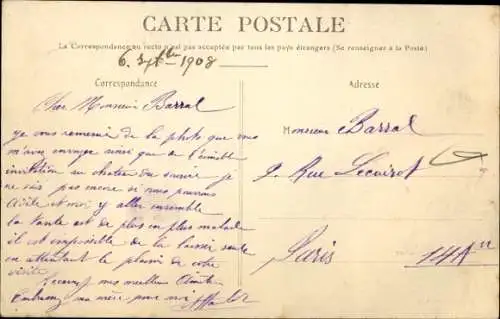 CARTE POSTALE
La Correspondance au recto n'est pas acceptée par tous les pays étrangers (Se renseigner à la Poste)
6 7bre 1908
Correspondance
Adresse
Cher Monsieur Barral
je vous remercie de la photo que vous
m'avez envoyé ainsi que de l'aimable
invitation au chateau du je
ne sais pas encore si nous pourrons
et moi y aller ensemble
la tante est de plus en plus malade
il est impossible de la laisser seule
en attendant le plaisir de votre
visite
Recevez mes meilleurs
Embrassez ma mère pour moi
Monsieur Barral
9 Rue Lecuirot
Paris
14 Arr